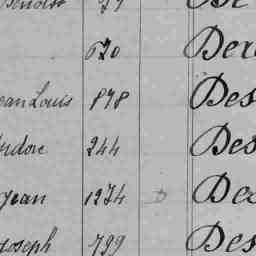 Benoist
620 Der
ean Louis 878 Des
idore 244 Des
Jean 1234 Des
Joseph 799 Des